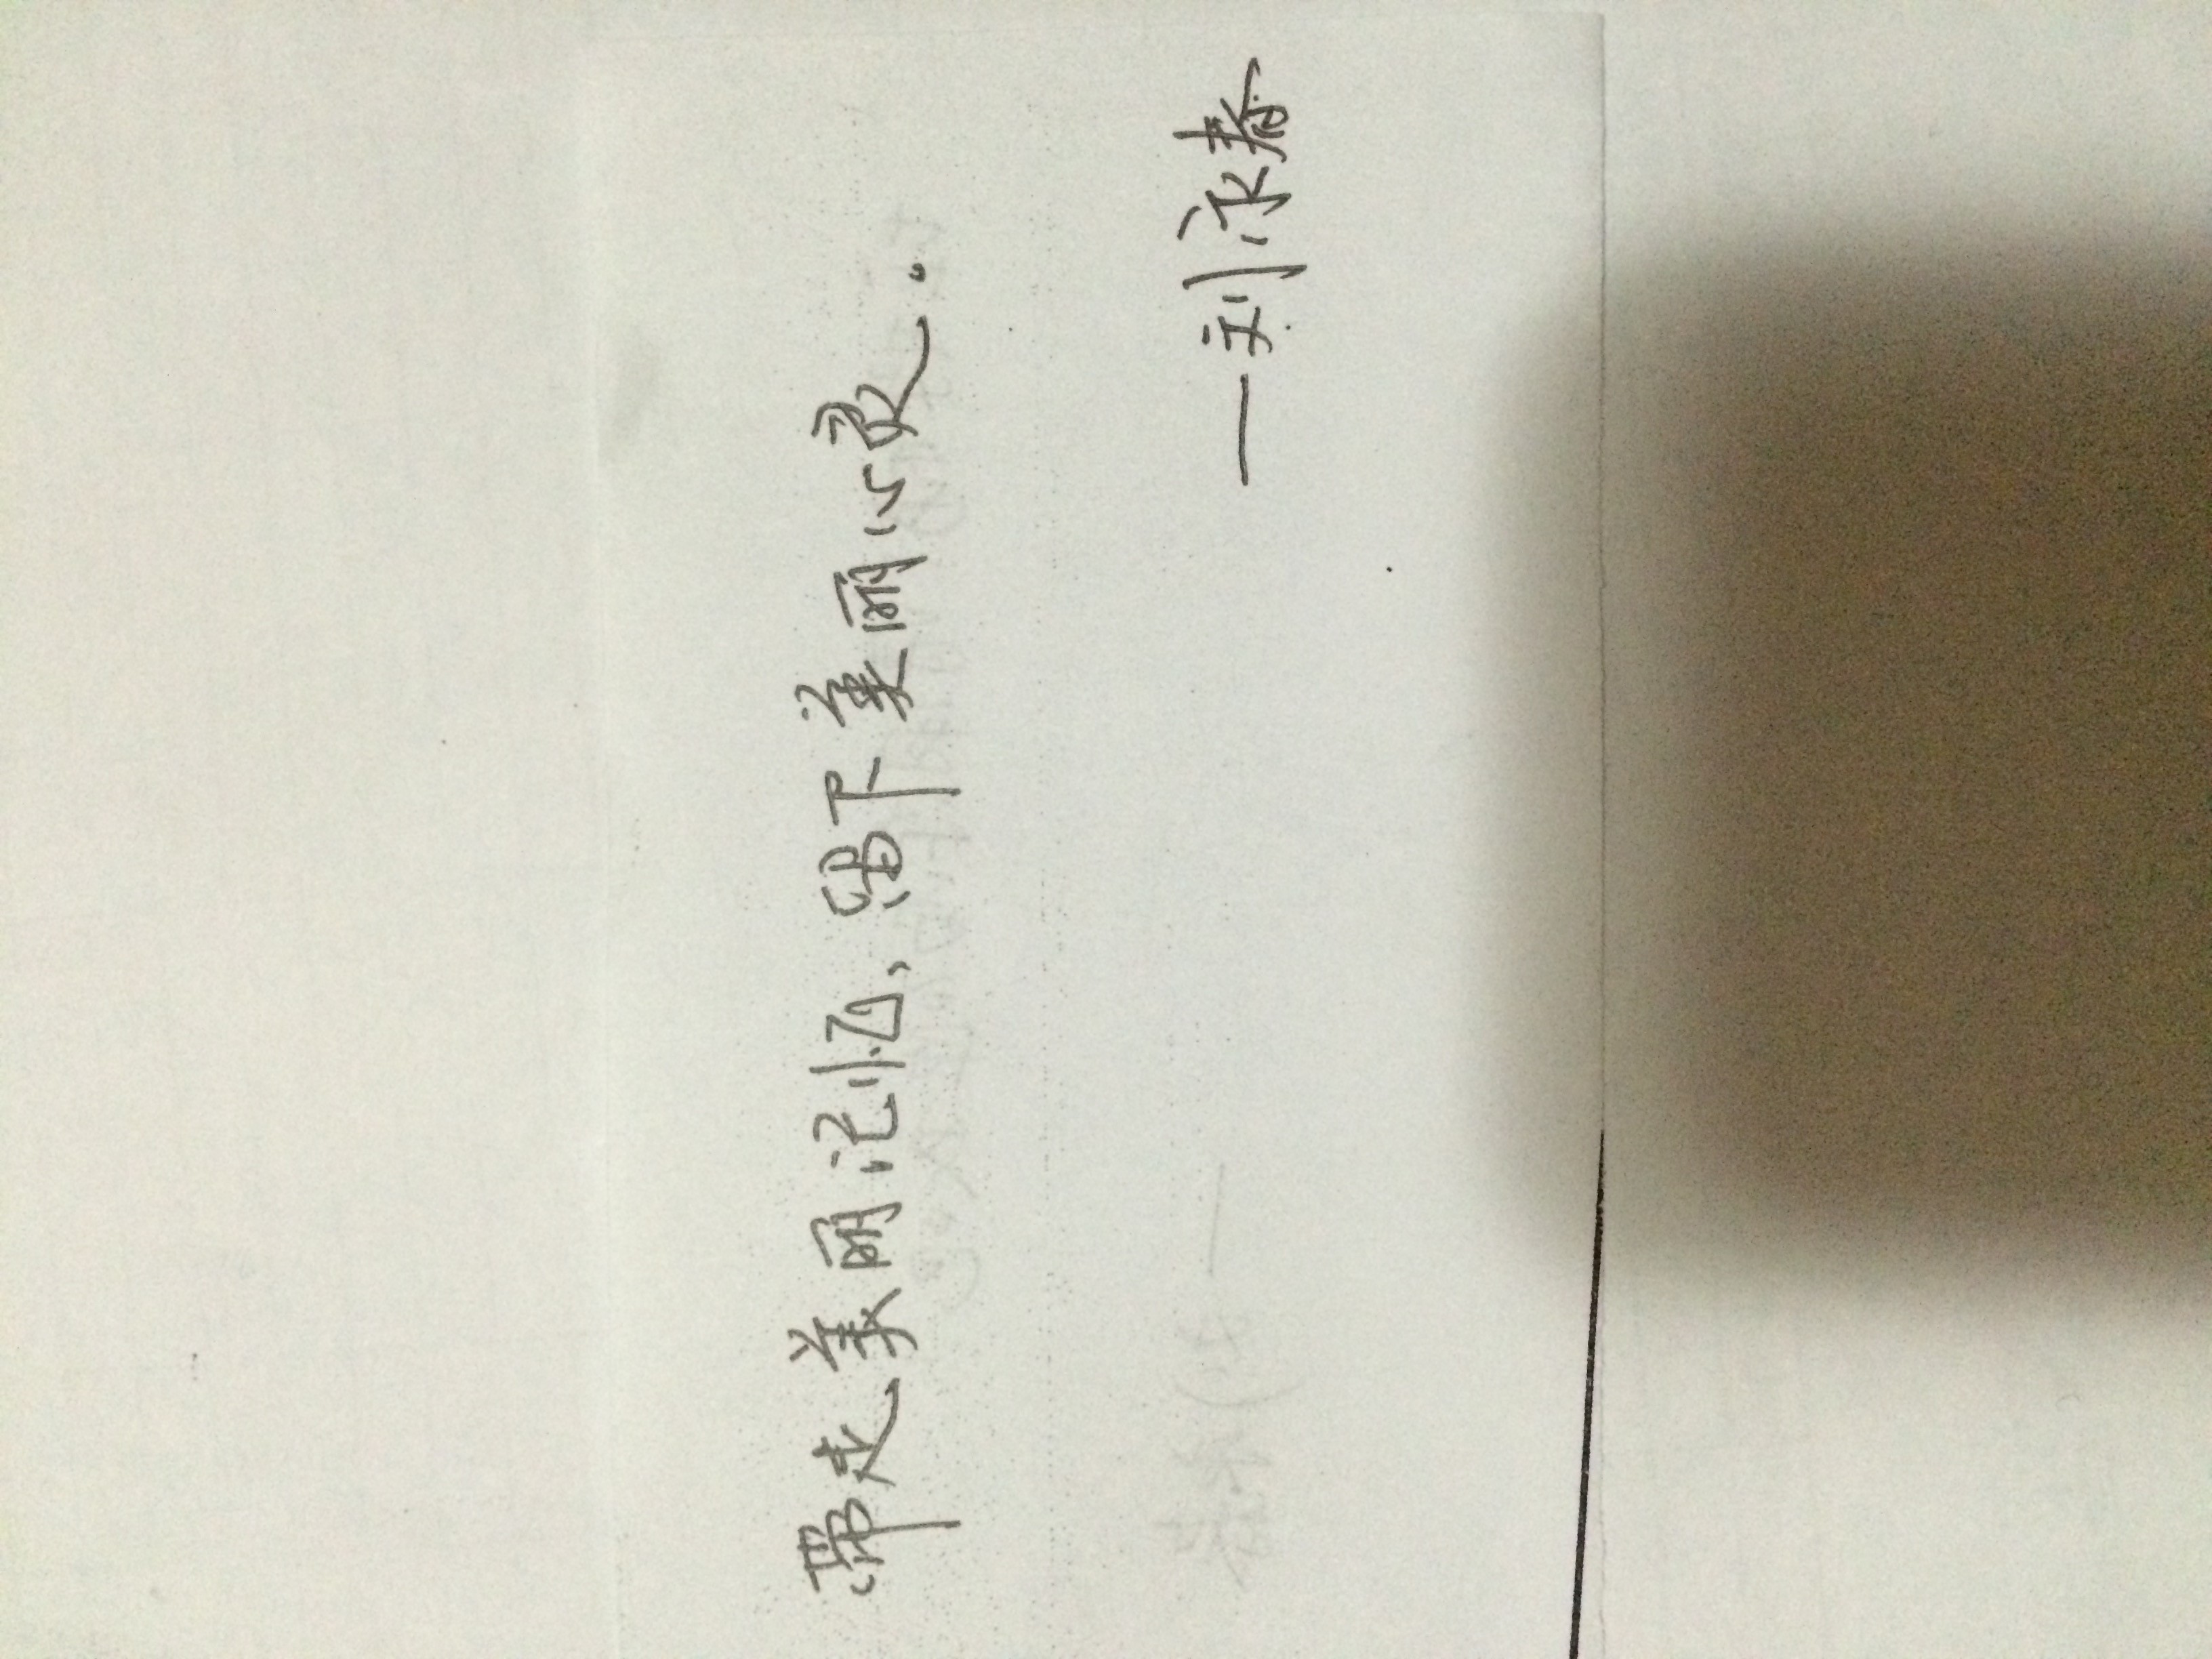 带走美丽记忆，留下美丽心灵。
—刘永春